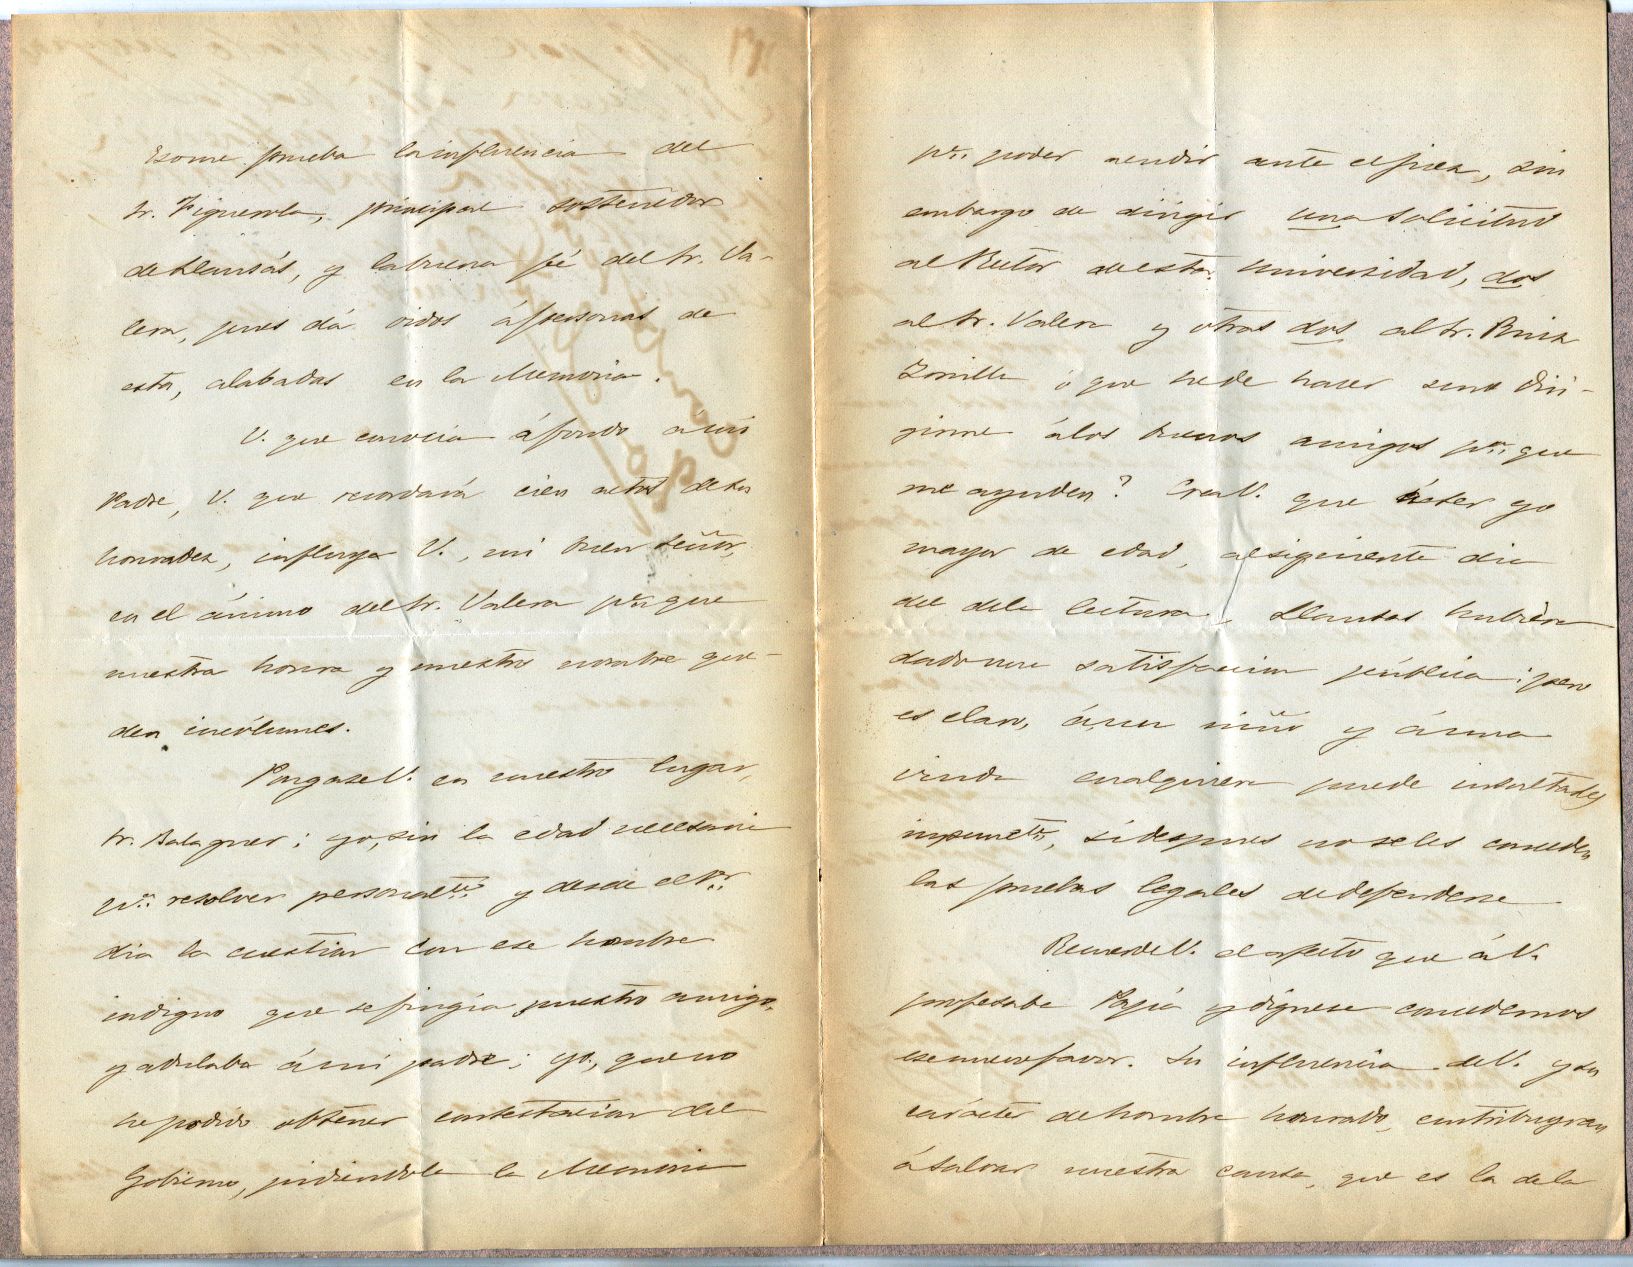 Eso me prueba la influencia del
Sr. Figuerola, principal sostenedor
de Llansás, y la buena fé del Sr. Va-
lera, pues dá oidos á personas de
esta, alabadas en la Memoria.
V. que conocia á fondo á mi
Padre, V. que recordará cien actos de su
honradez, influya V., mi buen Señor,
en el ánimo del Sr. Valera pª. que
nuestra honra y nuestro nombre que-
den incólumes.
Pongase V. en nuestro lugar,
Sr. Balaguer: yo, sin la edad necesaria
pª. resolver personalte. y desde el 1er.
dia la cuestion con ese hombre
indigno que se fingia nuestro amigo,
y adulaba á mi padre; yo, que no
he podido obtener contestacion del
Gobierno, pidiendole la Memoria
pª. poder acudir ante el juez, sin
embargo de dirigir una solicitud
al Rector de esta Universidad, dos
al Sr. Valera y otras dos al Sr. Ruiz
Zorrilla ¿que he de hacer sino diri-
girme á los buenos amigos pª. que
me ayuden? Crea V. que á ser yo
mayor de edad, al siguiente dia
del de la lectura, Llansás hubiera
dadome satisfaccion pública: pero
es claro, á un niño y á una
viuda cualquiera puede insultarles
impunete, si despues no se les conceden
las pruebas legales de defenderse.
Recuerde V. el afecto que á V.
profesaba Papá y dígnese concedernos
ese nuevo favor. Su influencia de V. y su
carácter de hombre honrado, contribuyan
á salvar nuestra causa, que es la de la